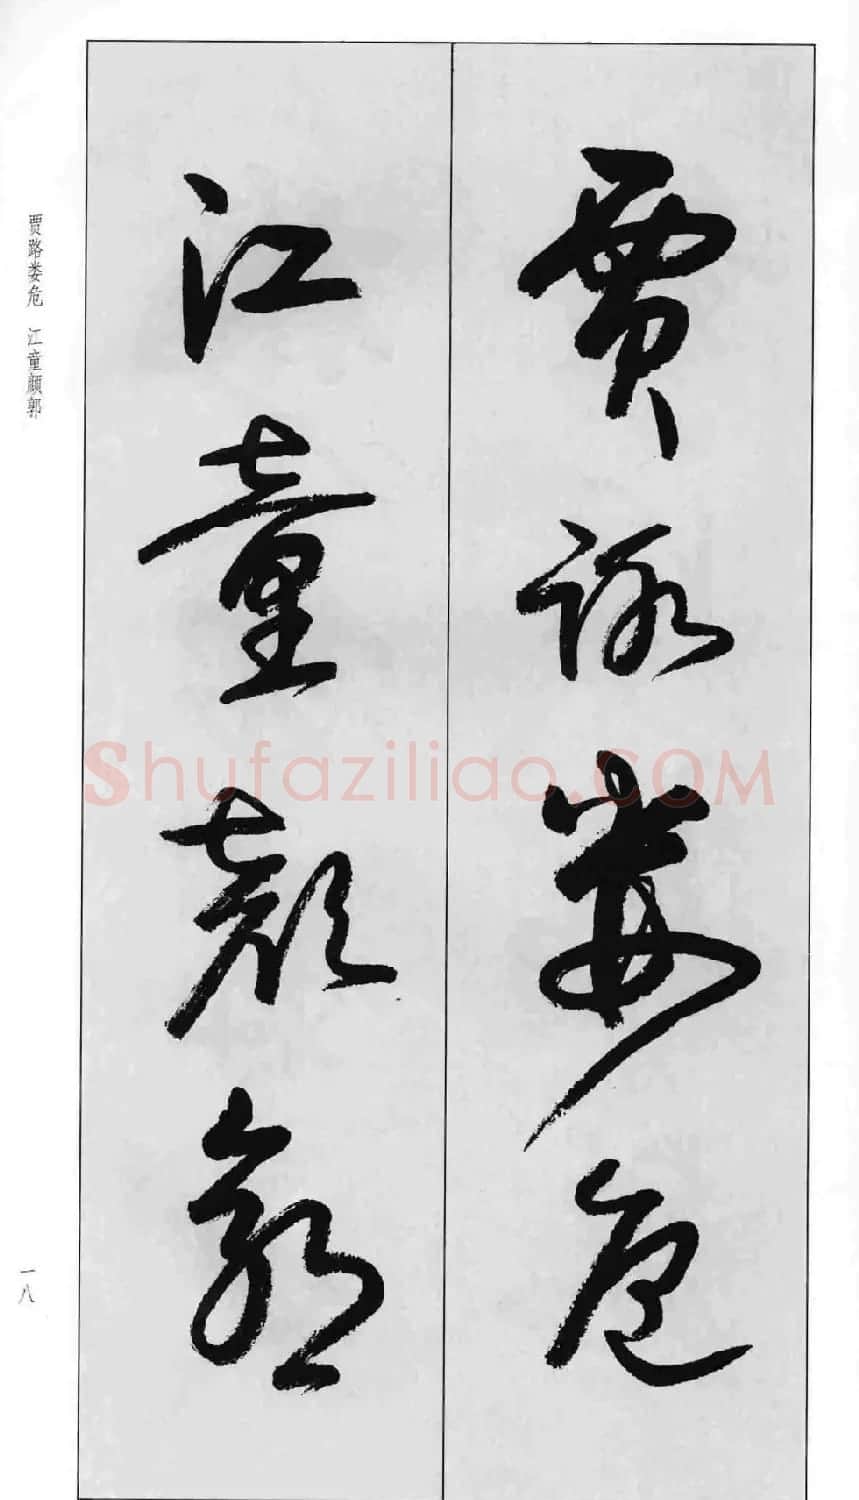 賈路婁危
江童顔郭
贾路娄危 江童颜郭
一八
Shufaziliao.COM